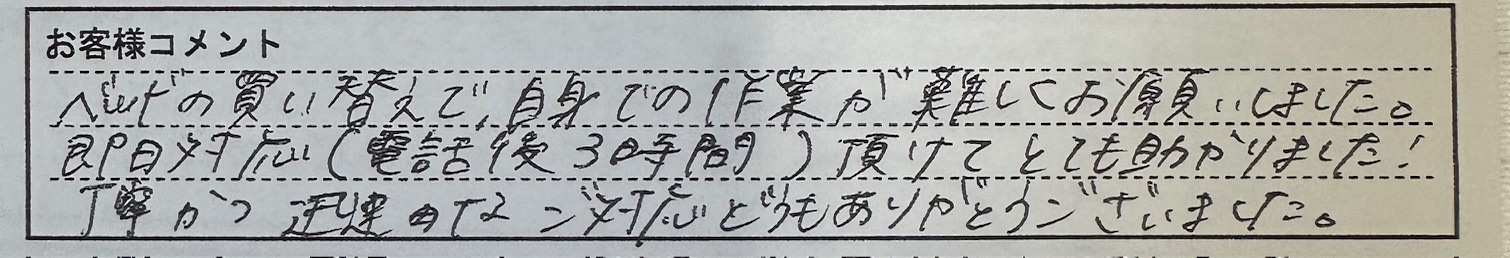 お客様コメント
ベッドの買い替えで、自身での作業が難しくお願いしました。
即日対応(電話後3時間)頂けてとても助かりました!
丁寧かつ迅速なご対応どうもありがとうございました。